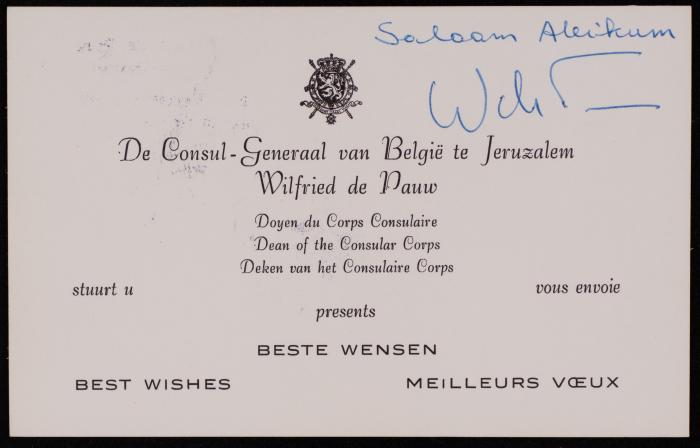 Salaam Aleikum
De Consul-Generaal van België te Jeruzalem
Wilfried de Pauw
Doyen du Corps Consulaire
Dean of the Consular Corps
Deken van het Consulaire Corps
stuurt u
vous envoie
presents
BESTE WENSEN
BEST WISHES
MEILLEURS VŒUX